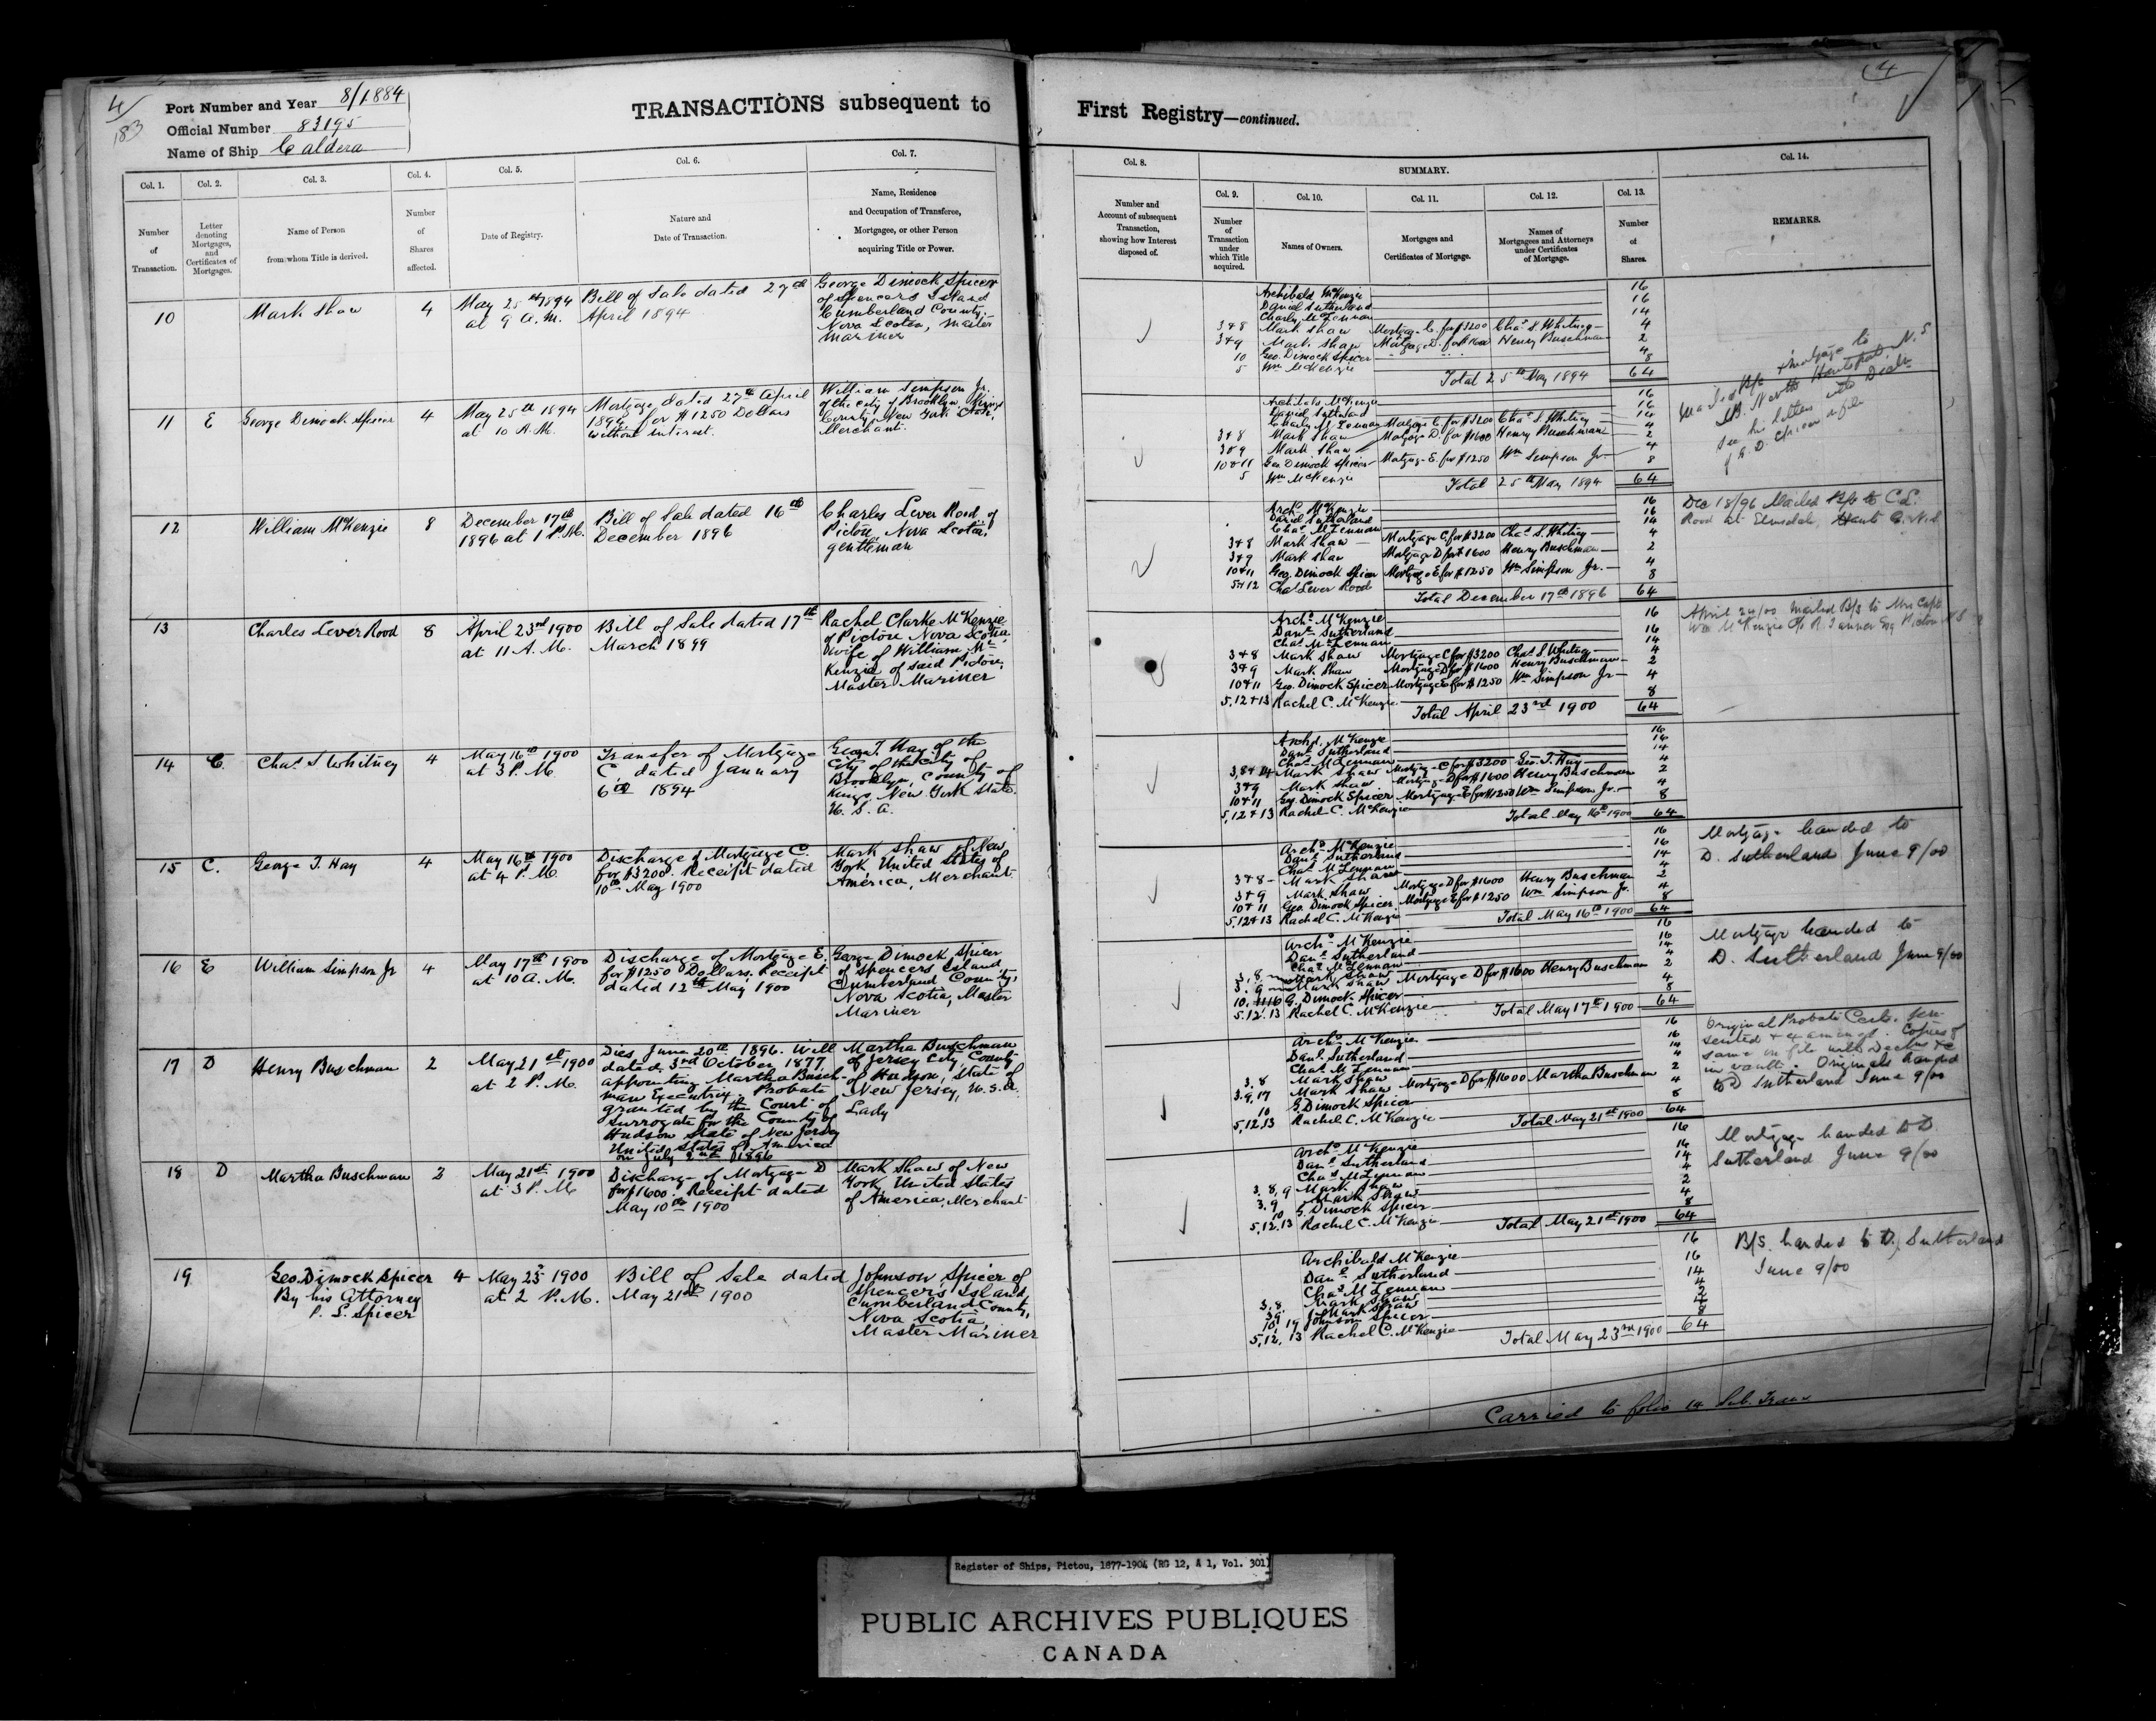 4/
183
Port Number and Year 8/1884
Official Number 83195
Name of Ship Caldera
TRANSACTIONS subsequent to
First Registry—continued.
4
Col. 1.
Col. 2.
Col. 3.
Col. 4.
Col. 5.
Col. 6.
Col. 7.
Number
of
Transaction.
Letter
denoting
Mortgages,
and
Certificates of
Mortgages.
Name of Person
from whom Title is derived.
Number
of
Shares
affected.
Date of Registry.
Nature and
Date of Transaction.
Name, Residence
and Occupation of Transferee,
Mortgagee, or other Person
acquiring Title or Power.
Col. 8.
SUMMARY.
Col. 14.
Col. 9.
Col. 10.
Col. 11.
Col. 12.
Col. 13.
Number and
Account of subsequent
Transaction,
showing how Interest
disposed of.
Number
of
Transaction
under
which Title
acquired.
Names of Owners.
Mortgages and
Certificates of Mortgage.
Names of
Mortgagees and Attorneys
under Certificates
of Mortgage.
Number
of
Shares.
REMARKS.
10
Mark Shaw
4
May 25th 1894
at 9 A.M.
Bill of Sale dated 27th
April 1894
George Dimock Spicer
of Spencers Island
Cumberland County,
Nova Scotia, Master
Mariner
Archibald McKenzie 16
Daniel Sutherland 16
Charles McLennan 14
3+8 Mark Shaw Mortgage C. for $3200 Chas S. Whitney 4
3+9 Mark Shaw Mortgage D. for $1600 Henry Buschman 2
10 Geo. Dimock Spicer 4
5 Wm McKenzie 8
Total 25th May 1894 64
11
E
George Dimock Spicer
4
May 25th 1894
at 10 A.M.
Mortgage dated 27th April
1894 for $1250 Dollars
without interest.
William Simpson Jr.
of the city of Brooklyn, Kings
County, New York State,
Merchant.
Archibald McKenzie 16
Daniel Sutherland 16
Charles McLennan 14
3+8 Mark Shaw Mortgage C. for $3200 Chas S. Whitney 4
3+9 Mark Shaw Mortgage D. for $1600 Henry Buschman 2
10+11 Geo Dimock Spicer Mortgage E. for $1250 Wm Simpson Jr. 4
5 Wm McKenzie 8
Total 25th May 1894 64
Mailed B/s + mortgage to
North Hantsport, N.S
see his letter with
G. D. Spicer
12
William McKenzie
8
December 17th
1896 at 1 P.M.
Bill of Sale dated 16th
December 1896
Charles Lever Rood of
Pictou Nova Scotia,
gentleman
Archd McKenzie 16
Daniel Sutherland 16
Chas McLennan 14
3+8 Mark Shaw Mortgage C for $3200 Chas S. Whitney 4
3+9 Mark Shaw Mortgage D for $1600 Henry Buschman 2
10+11 Geo. Dimock Spicer Mortgage E for $1250 Wm Simpson Jr. 4
5+12 Chas Lever Rood 8
Total December 17th 1896 64
Dec 18/96 Mailed B/s to C.L.
Rood at Elmsdale, Hants Co. N.S.
13
Charles Lever Rood
8
April 23rd 1900
at 11 A.M.
Bill of Sale dated 17th
March 1899
Rachel Clarke McKenzie
of Pictou Nova Scotia,
wife of William Mc
Kenzie of said Pictou,
Master Mariner
Archd McKenzie 16
Danl Sutherland 16
Chas McLennan 14
3+8 Mark Shaw Mortgage C for $3200 Chas S. Whitney 4
3+9 Mark Shaw Mortgage D for $1600 Henry Buschman 2
10+11 Geo. Dimock Spicer Mortgage E for $1250 Wm Simpson Jr 4
5,12+13 Rachel C. McKenzie 8
Total April 23rd 1900 64
April 24/00 mailed B/s to Mrs Capt.
Wm McKenzie c/o R. Tanner Esq Pictou N S
14
C.
Chas S Whitney
4
May 16th 1900
at 3 P.M.
Transfer of Mortgage
C, dated January
6th 1894
George T. Hay of the
City of the City of
Brooklyn, County of
Kings, New York State.
U. S. A.
Archd. McKenzie 16
Danl Sutherland 16
Chas McLennan 14
3,8+14 Mark Shaw Mortgage C for $3200 Geo. T. Hay 4
3+9 Mark Shaw Mortgage D for $1600 Henry Buschman 2
10+11 Geo. Dimock Spicer Mortgage E for $1250 Wm Simpson Jr. 4
5,12+13 Rachel C. McKenzie 8
Total May 16th 1900 64
15
C.
George T. Hay
4
May 16th 1900
at 4 P.M.
Discharge of Mortgage C.
for $3200. Receipt dated
10th May 1900
Mark Shaw of New
York, United States of
America, Merchant
Archd McKenzie 16
Danl Sutherland 16
Chas McLennan 14
3+8 Mark Shaw 4
3+9 Mark Shaw Mortgage D for $1600 Henry Buschman 2
10+11 Geo. Dimock Spicer Mortgage E for $1250 Wm Simpson Jr. 4
5,12+13 Rachel C. McKenzie 8
Total May 16th 1900 64
Mortgage handed to
D. Sutherland June 9/00
16
E
William Simpson Jr
4
May 17th 1900
at 10 A.M.
Discharge of Mortgage E.
for $1250 Dollars. Receipt
dated 12th May 1900
George Dimock Spicer
of Spencers Island
Cumberland County,
Nova Scotia, Master
Mariner
Archd McKenzie 16
Danl Sutherland 16
Chas McLennan 14
3,8 Mark Shaw 4
3,9 Mark Shaw Mortgage D for $1600 Henry Buschman 2
10, 11 16 G. Dimock Spicer 4
5,12,13 Rachel C. McKenzie 8
Total May 17th 1900 64
Mortgage handed to
D. Sutherland June 9/00
17
D
Henry Buschman
2
May 21st 1900
at 2 P.M.
Dies June 20th 1896. Will
dated 3rd October 1877,
appointing Martha Busch-
man Executrix. Probate
granted by the Court of
Surrogate for the County of
Hudson State of New Jersey
United States of America
on July 2nd 1896
Martha Buschman
of Jersey City, County
of Hudson, State of
New Jersey, U.S.A.
Lady
Archd McKenzie 16
Danl. Sutherland 16
Chas McLennan 14
3,8 Mark Shaw 4
3,9,17 Mark Shaw Mortgage D for $1600 Martha Buschman 2
10 G Dimock Spicer 4
5,12,13 Rachel C. McKenzie 8
Total May 21st 1900 64
Original Probate Certs. pre-
sented + examined. Copies of
same on file with Decltns &c
in vault. Originals handed
to D Sutherland June 9/00
18
D
Martha Buschman
2
May 21st 1900
at 3 P.M.
Discharge of Mortgage D
for $1600. Receipt dated
May 10th 1900
Mark Shaw of New
York United States
of America, Merchant
Archd McKenzie 16
Danl Sutherland 16
Chas McLennan 14
3,8,9 Mark Shaw 4
3,9 Mark Shaw 2
10 G. Dimock Spicer 4
5,12,13 Rachel C. McKenzie 8
Total May 21st 1900 64
Mortgage handed to D.
Sutherland June 9/00
19
Geo. Dimock Spicer
By his Attorney
P. L. Spicer
4
May 23rd 1900
at 2 P.M.
Bill of Sale dated
May 21st 1900
Johnson Spicer of
Spencers Island,
Cumberland County,
Nova Scotia,
Master Mariner
Archibald McKenzie 16
Danl Sutherland 16
Chas McLennan 14
3,8 Mark Shaw 4
3,9 Mark Shaw 2
10, 19 Johnson Spicer 4
5,12,13 Rachel C. McKenzie 8
Total May 23rd 1900 64
B/s. handed to D. Sutherland
June 9/00
Carried to folio 14 Sub. Trans
Register of Ships, Pictou, 1877-1904 (RG 12, A 1, Vol. 301)
PUBLIC ARCHIVES PUBLIQUES
CANADA